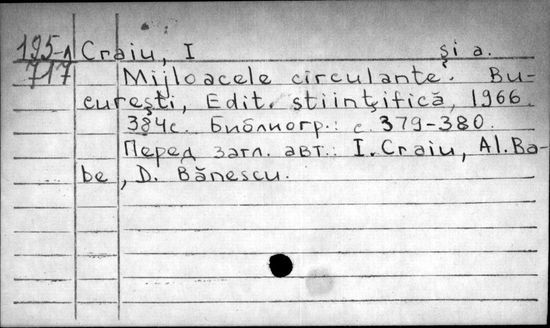 195-л Craiu, I și a.
717 Mijloacele circulante. Bu-
curești, Edit. stiințifică, 1966.
384с. Библиогр.: с. 379-380.
Перед загл. авт.: I. Craiu, Al. Ba-
be, D. Bănescu.